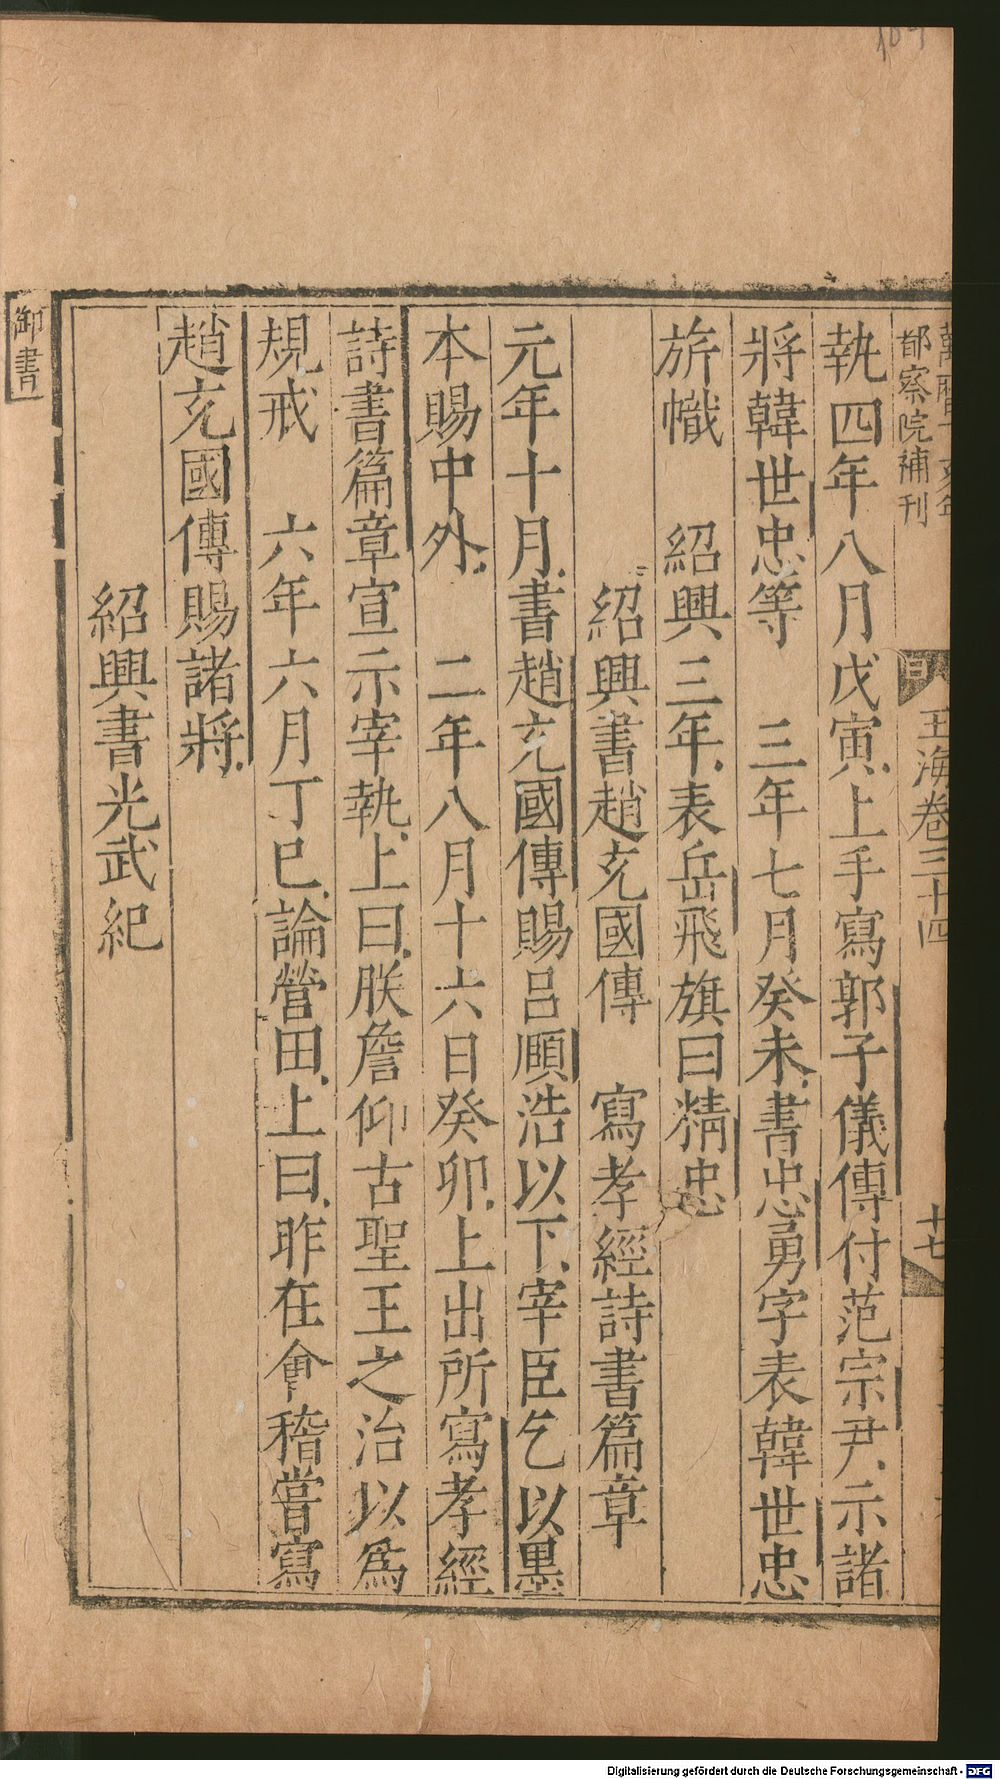 都察院補刊
玉海卷三十四
十七
執四年八月戊寅上手寫郭子儀傳付范宗尹示諸
將韓世忠等　三年七月癸未書忠勇字表韓世忠
旂幟　紹興三年表岳飛旗曰精忠
紹興書趙充國傳　寫孝經詩書篇章
元年十月書趙充國傳賜呂頤浩以下宰臣乞以墨
本賜中外　二年八月十六日癸卯上出所寫孝經
詩書篇章宣示宰執上曰朕詹仰古聖王之治以爲
規戒　六年六月丁巳論營田上曰昨在會稽嘗寫
趙充國傳賜諸將
紹興書光武紀
御書一
Digitalisierung gefördert durch die Deutsche Forschungsgemeinschaft - DFG